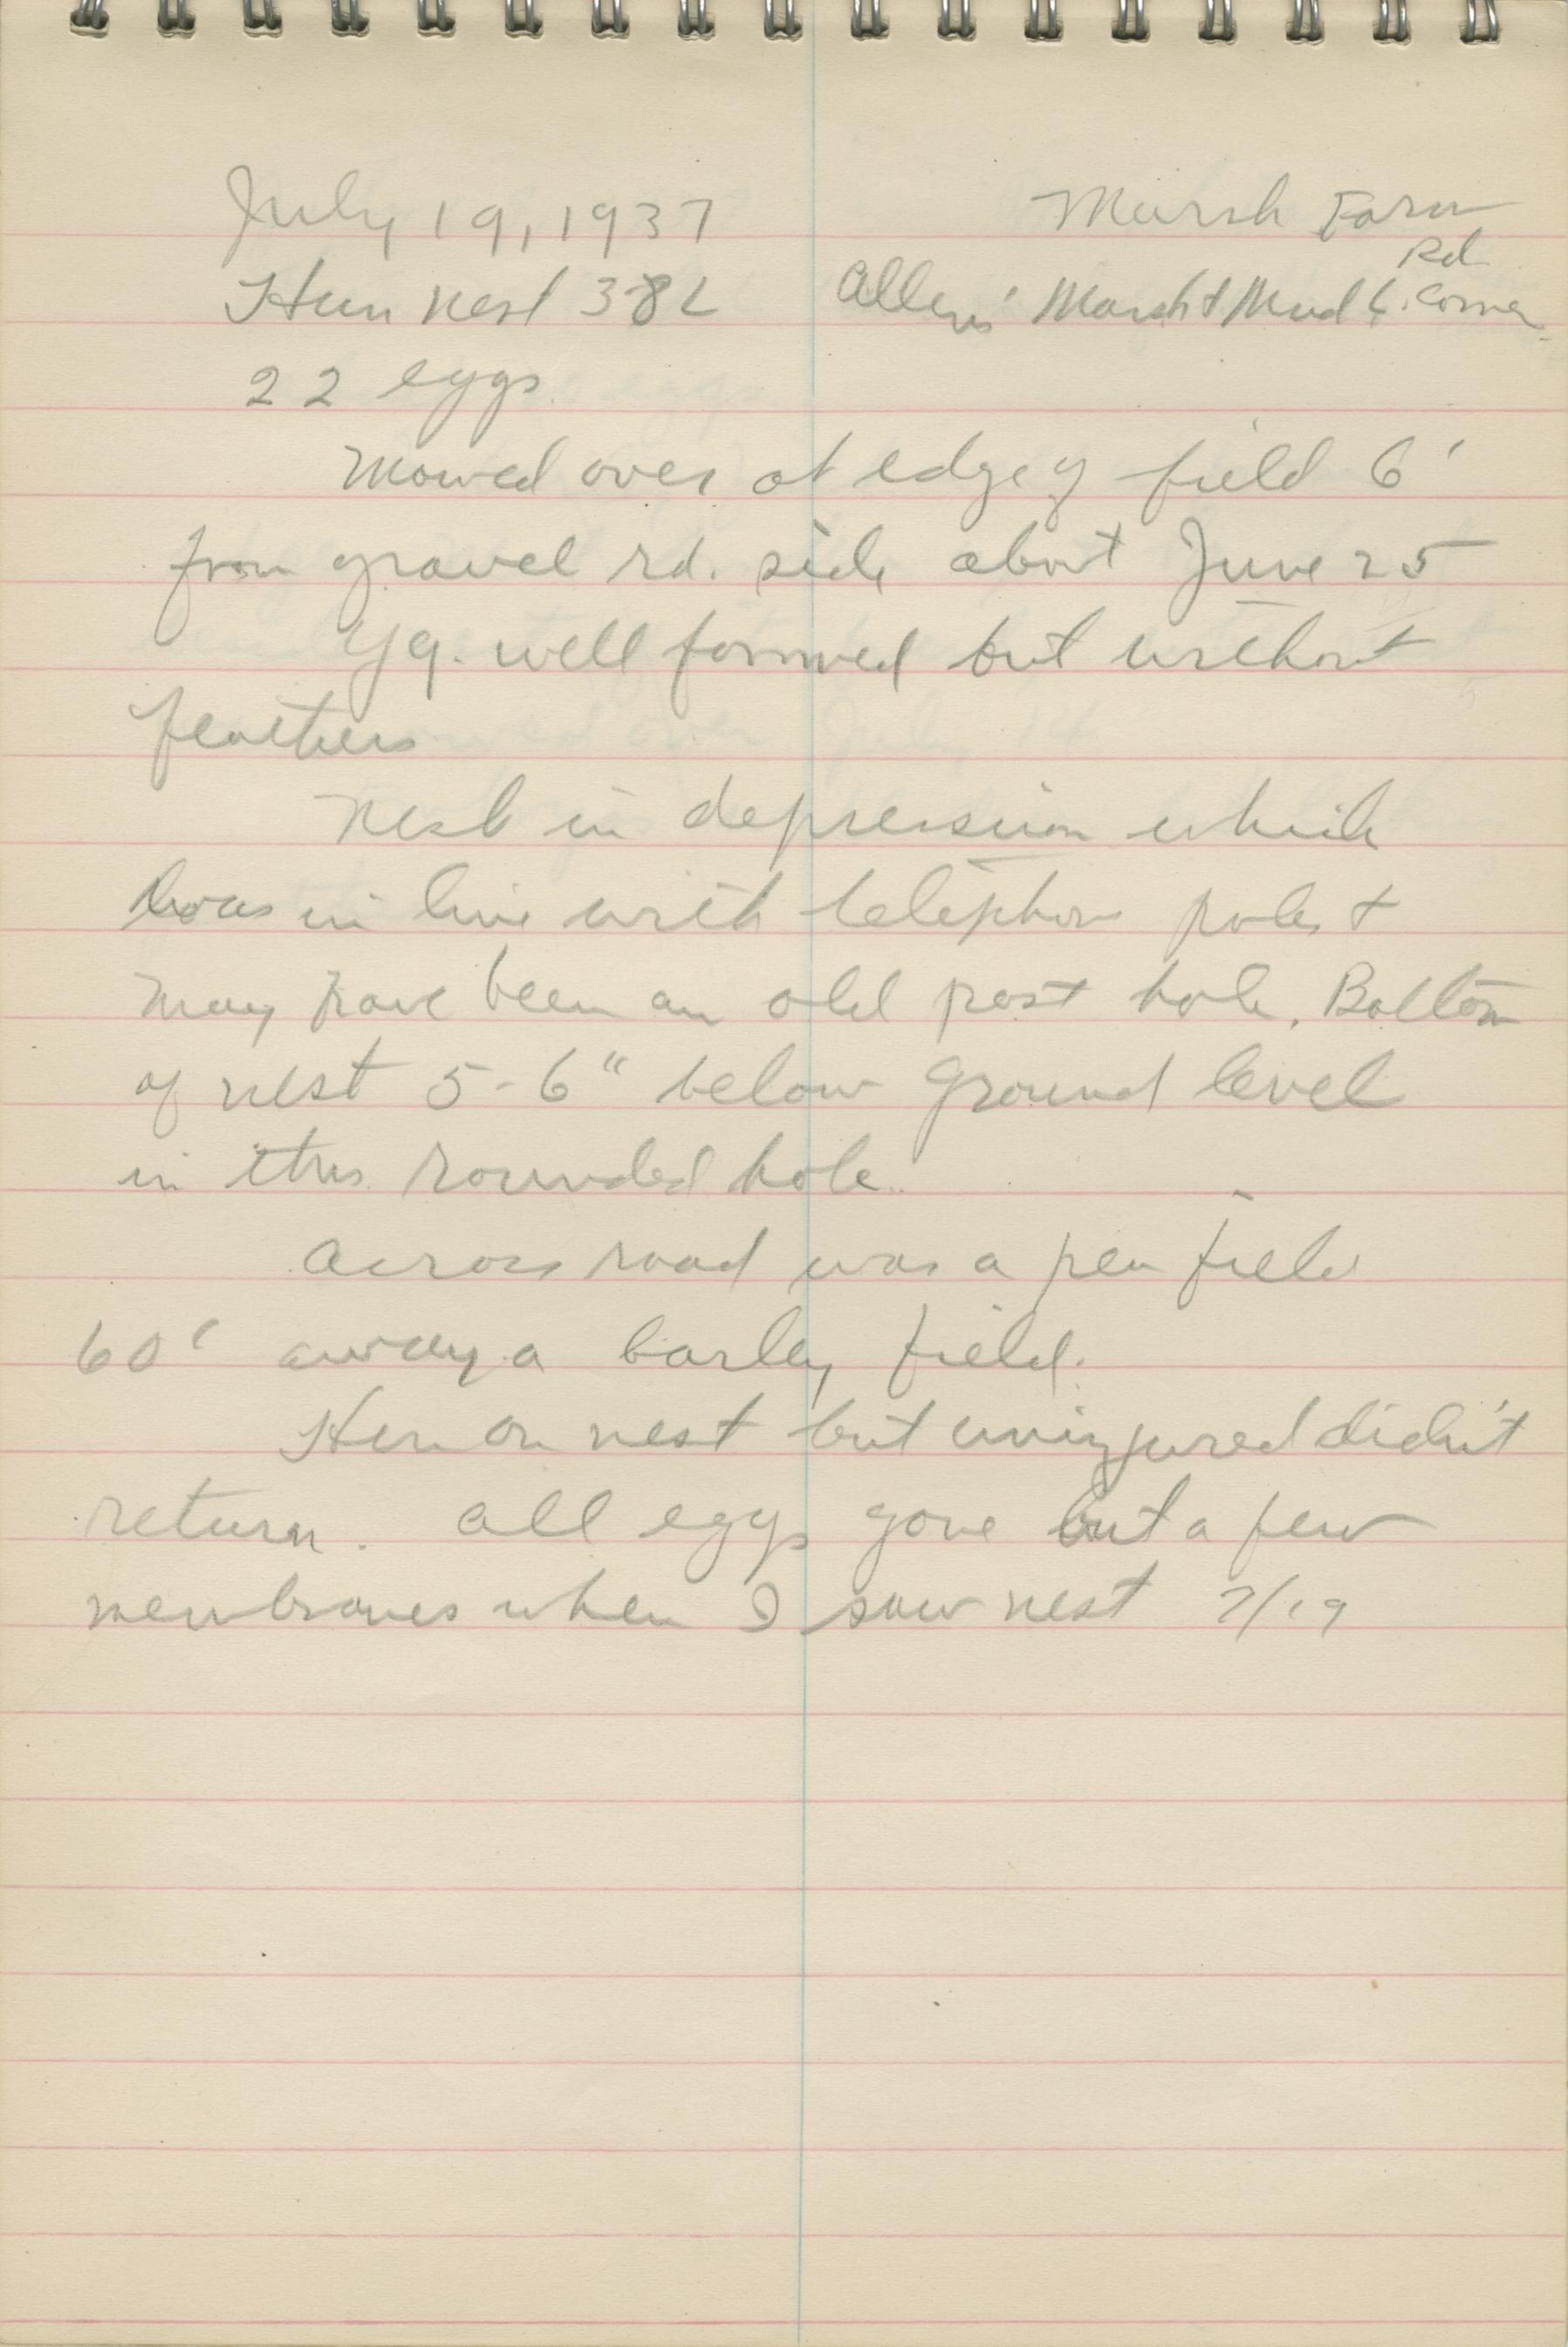 July 19, 1937 Marsh Farm
Rd
Hun nest 38L Allens' Marsh + Mud L. Corner
22 eggs
Mowed over at edge of field 6'
from gravel rd. side about June 25
Yg. well formed but without
feathers
Nest in depression which
was in line with telephone poles +
may have been an old post hole. Bottom
of nest 5-6" below ground level
in this rounded hole.
Across road was a pea field
60' away a barley field.
Hen on nest but uninjured didn't
return. All eggs gone but a few
membranes when I saw nest 7/19